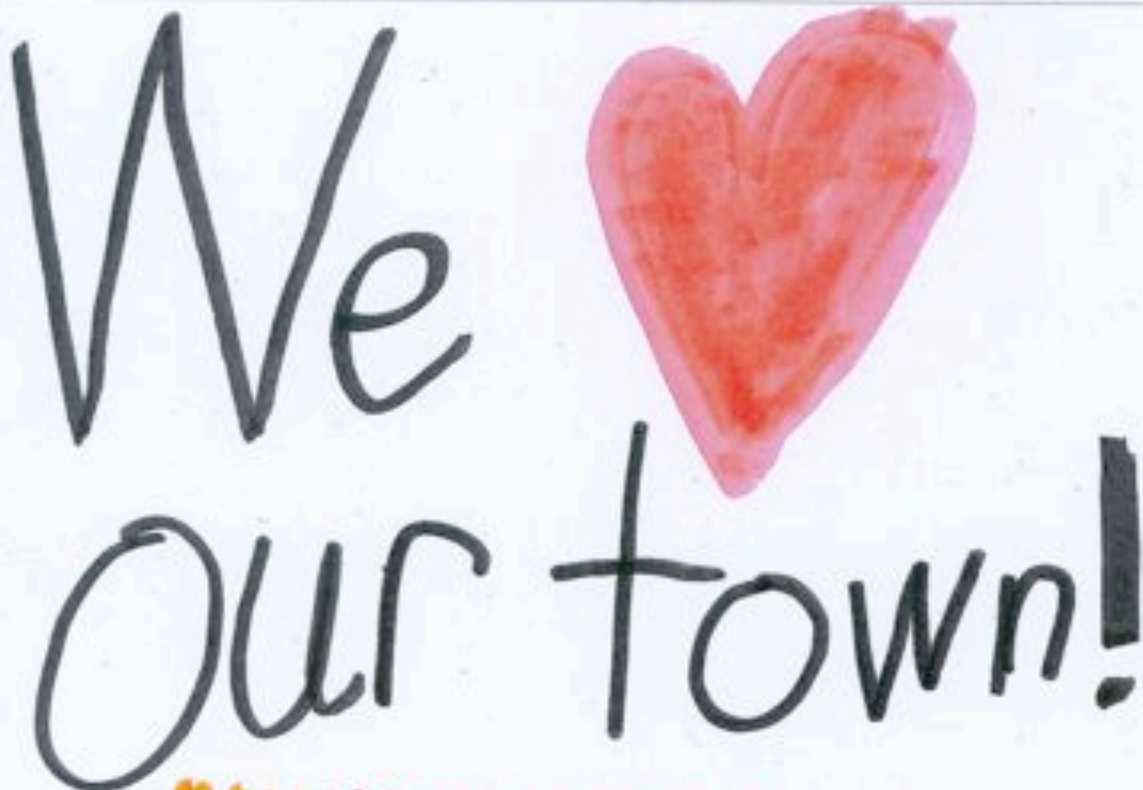 We ❤
our town!